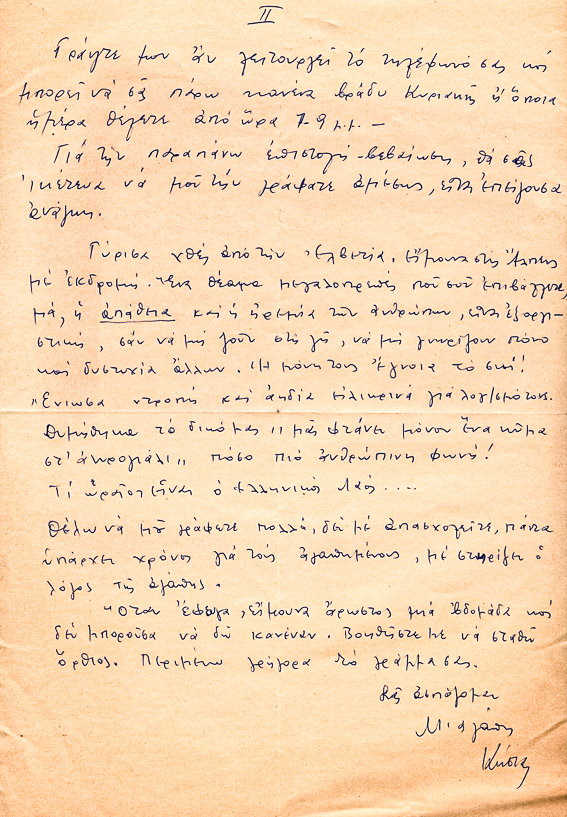 II
Γράψτε μου ἄν λειτουργεῖ τό τηλέφωνό σας καί
μπορεῖ νά σᾶς πάρω κανένα βράδυ Κυριακῆς ἤ ὅποια
ἡμέρα θέλετε ἀπό ὥρα 7-9 μ.μ. —
Γιά τήν παραπάνω ἐπιστολή-βεβαίωση, θά σᾶς
ἱκέτευα νά μοῦ τήν γράφατε ἀμέσως, εἶναι ἐπείγουσα
ἀνάγκη.
Γύρισα χθές ἀπό τήν Ἑλβετία. Εἴμουνα στίς Ἄλπεις
μέ ἐκδρομή. Ἕνα θέαμα μεγαλοπρεπές πού σοῦ ἐπιβάλλεται,
μά, ἡ ἀπάθεια καί ἡ ἠρεμία τῶν ἀνθρώπων, εἶναι ἐξοργι-
στική, σάν νά μή ζοῦν στή γῆ, νά μή γνωρίζουν πόνο
καί δυστυχία ἄλλων. Ἡ μόνη τους ἔγνοια τό σκί!
Ἔνιωσα ντροπή καί ἀηδία εἰλικρινά γιά λογ/σμό τους.
Θυμήθηκα τό δικό μας „ μᾶς φτάνει μόνον ἕνα κῦμα
στ' ἀκρογιάλι „ πόσο πιό ἀνθρώπινη φωνή!
Τί ὡραῖος εἶναι ὁ Ἑλληνικός Λαός ....
Θέλω νά μοῦ γράψετε πολλά, δέν μέ ἀπασχολεῖτε, πάντα
ὑπάρχει χρόνος γιά τούς ἀγαπημένους, μέ στηρίζει ὁ
λόγος τῆς ἀγάπης.
Ὅταν ἔφυγα, εἴμουνα ἄρρωστος μιά ἑβδομάδα καί
δέν μποροῦσα νά δῶ κανέναν. Βοηθῆστε με νά σταθῶ
ὄρθιος. Περιμένω γρήγορα τό γράμμα σας.
Σᾶς ἀσπάζομαι
Μέ ἀγάπη
Κώστας